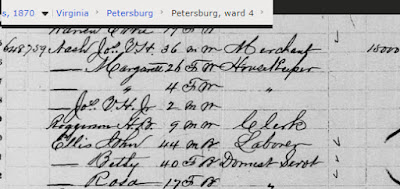 s, 1870 ▾ › Virginia › Petersburg › Petersburg, ward 4 ›
Nash Jos. V.H. 36 m W Merchant 15000
— Margaret 26 F W Housekeeper
— " 4 F W "
— Jos. V.H. Jr 2 m W
H.B. 9 m W Clerk
Ellis John 44 m W Laborer
— Betty 40 F Domest Servt
— Rosa 17 F "